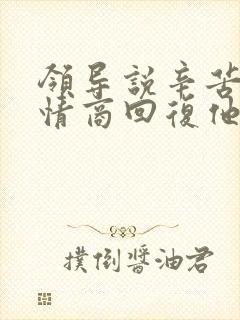 領导説辛苦
情商回復他
撲倒醬油君